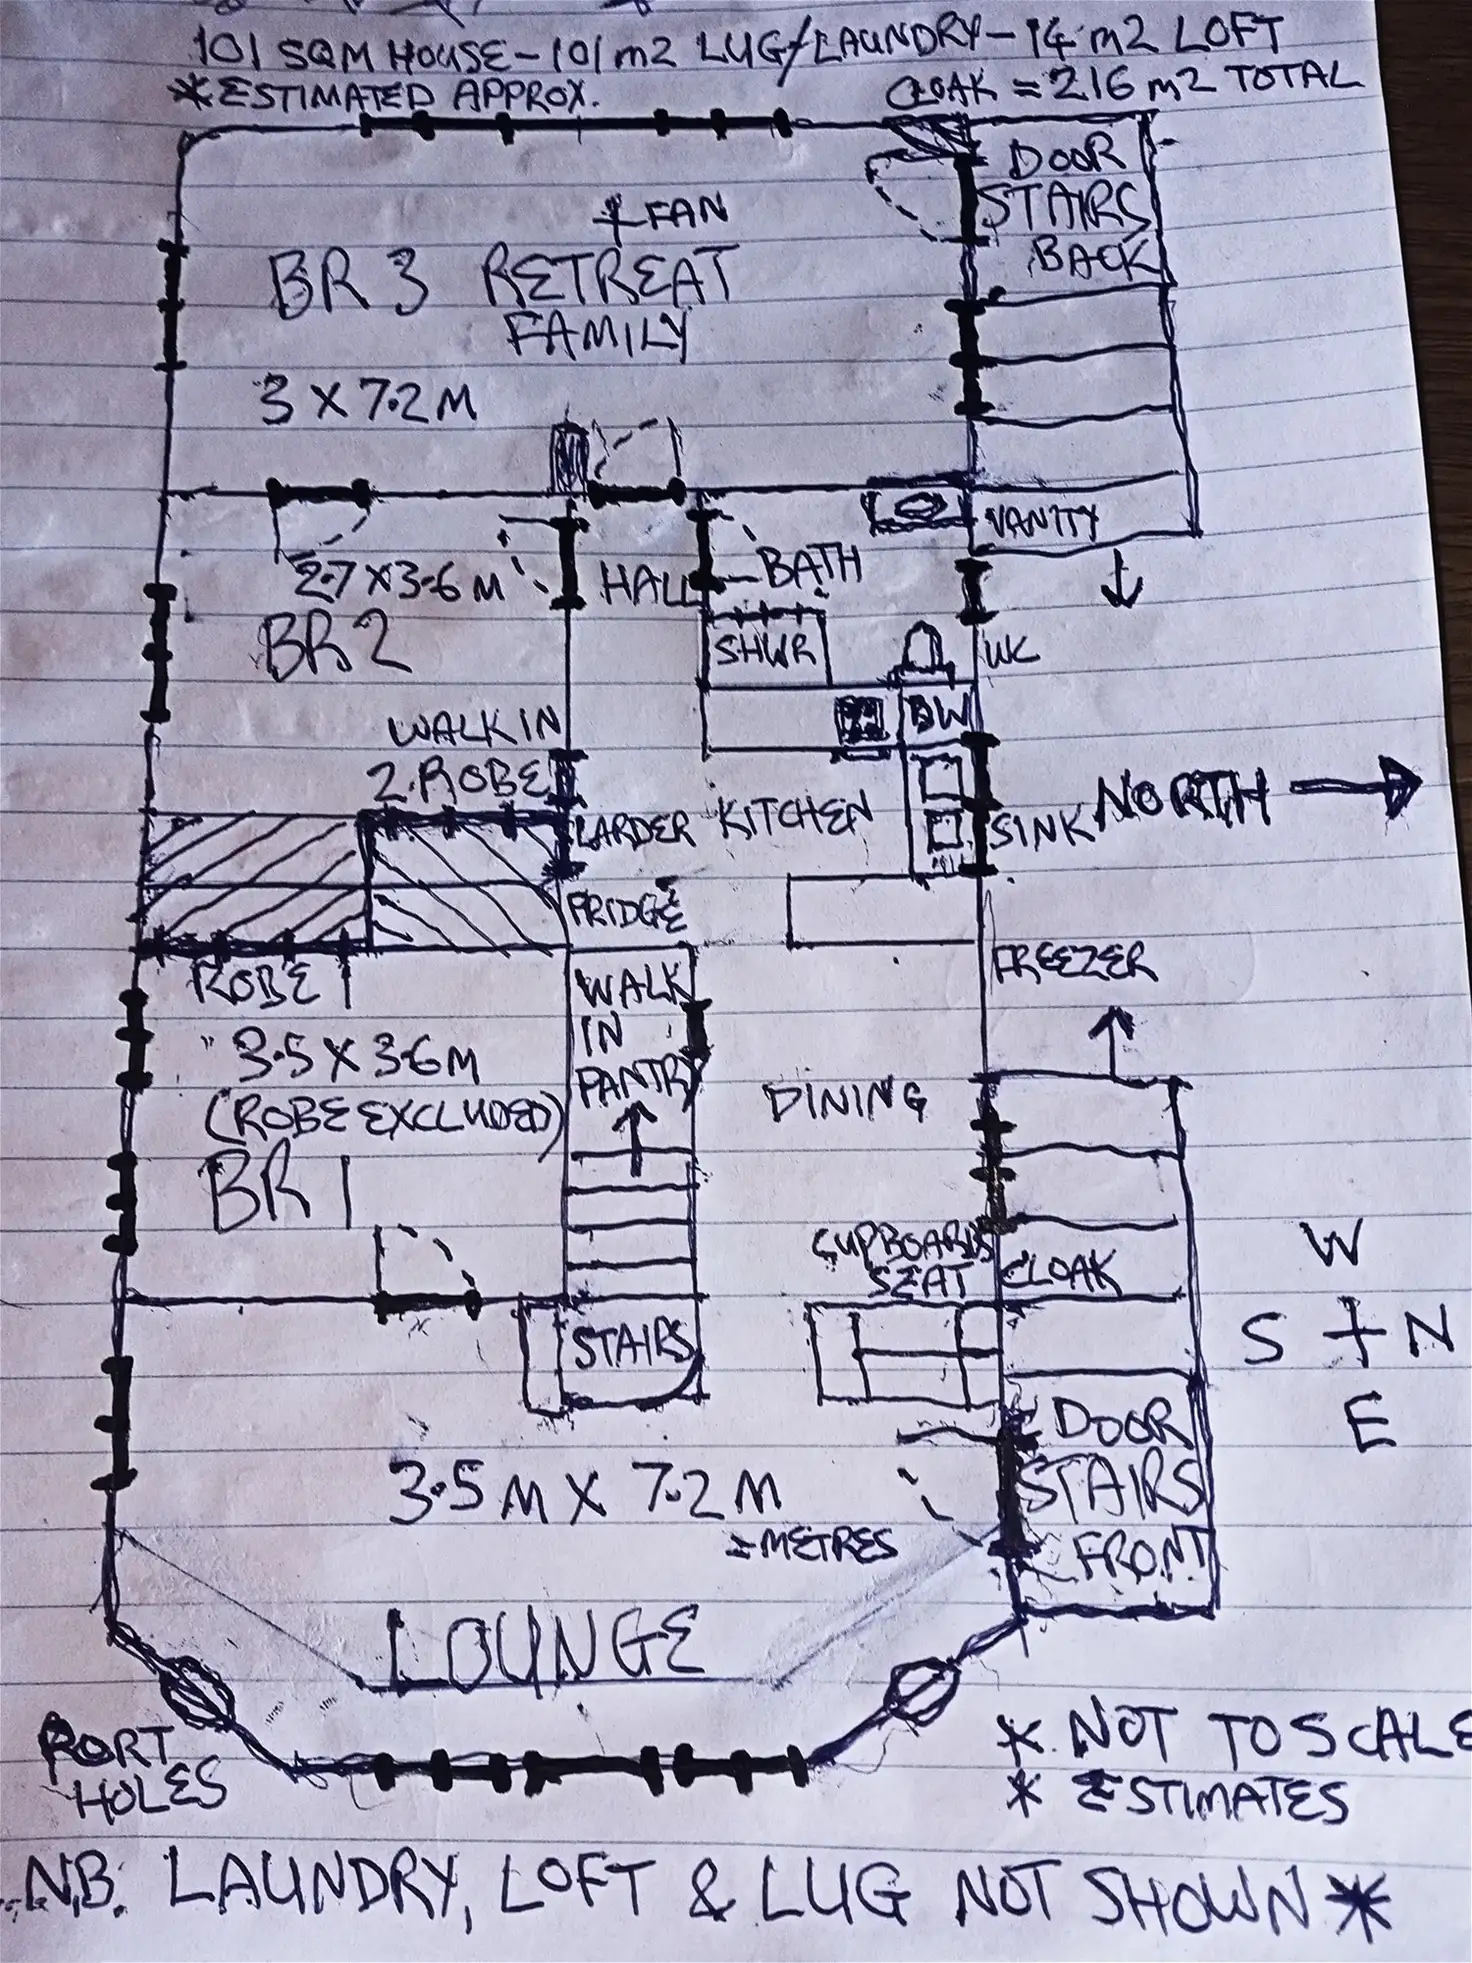 101 SQM HOUSE - 101 m2 LUG/LAUNDRY - 14 m2 LOFT
* ESTIMATED APPROX.
CLOAK = 216 m2 TOTAL
DOOR
STAIRS
BACK
FAN
BR 3 RETREAT
FAMILY
3 X 7.2 M
VANITY
2.7 X 3.6 M
HALL
BATH
BR 2
SHWR
WC
WALK IN
2. ROBE
DW
LARDER
KITCHEN
SINK
NORTH
FRIDGE
FREEZER
ROBE 1
WALK
IN
PANTRY
3.5 X 3.6 M
(ROBE EXCLUDED)
DINING
BR 1
CUPBOARDS
SEAT
CLOAK
W
S N
E
STAIRS
DOOR
STAIRS
FRONT
3.5 M X 7.2 M
= METRES
LOUNGE
PORT
HOLES
* NOT TO SCALE
* ESTIMATES
N.B. LAUNDRY, LOFT & LUG NOT SHOWN *